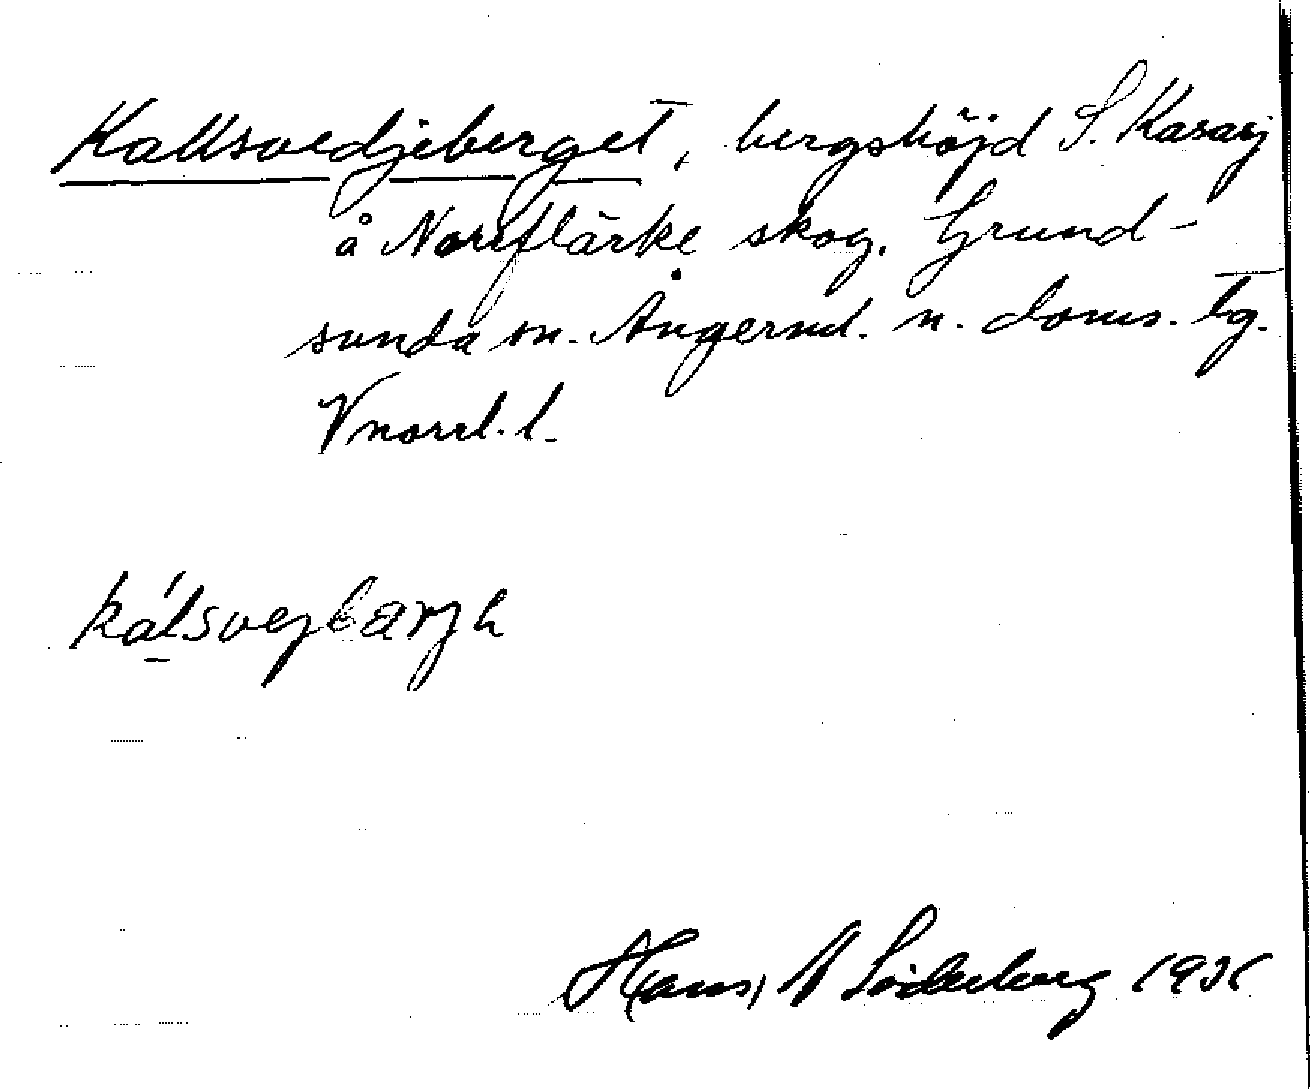 Kallsvedjeberget, bergshöjd S. Kasasj
å Norrflärke skog. Grund-
sunda sn. Ångerml. n. doms. tg.
Vnorrl. l.
kálsvejbarjh
Hans A Söderberg 1931